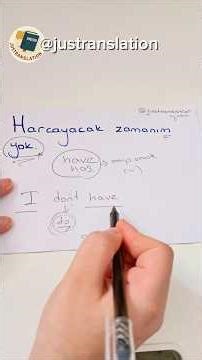 @justranslation
JUSTRANSLATION
@justranslation
Harcayacak zamanım
yok.
have
has
I don't have
do